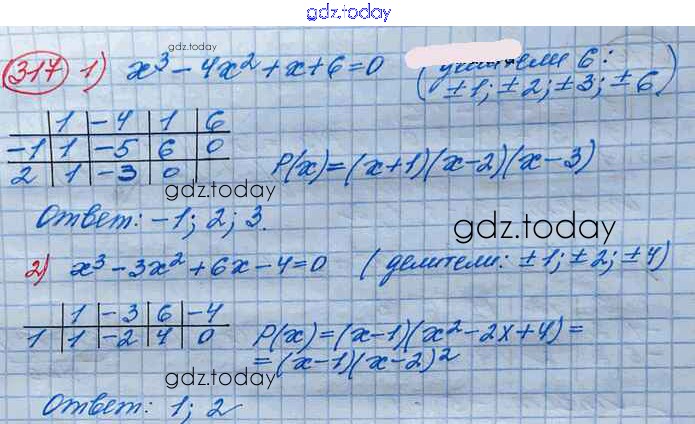 gdz.today
317 1) x³ - 4x² + x + 6 = 0 (делители 6:
± 1; ± 2; ± 3; ± 6)
gdz.today
1 -4 1 6
-1 1 -5 6 0
2 1 -3 0
P(x) = (x+1)(x-2)(x-3)
gdz.today
Ответ: -1; 2; 3.
gdz.today
2) x³ - 3x² + 6x - 4 = 0 (делители: ± 1; ± 2; ± 4)
1 -3 6 -4
1 1 -2 4 0
P(x) = (x-1)(x² - 2x + 4) =
= (x-1)(x-2)²
gdz.today
Ответ: 1; 2